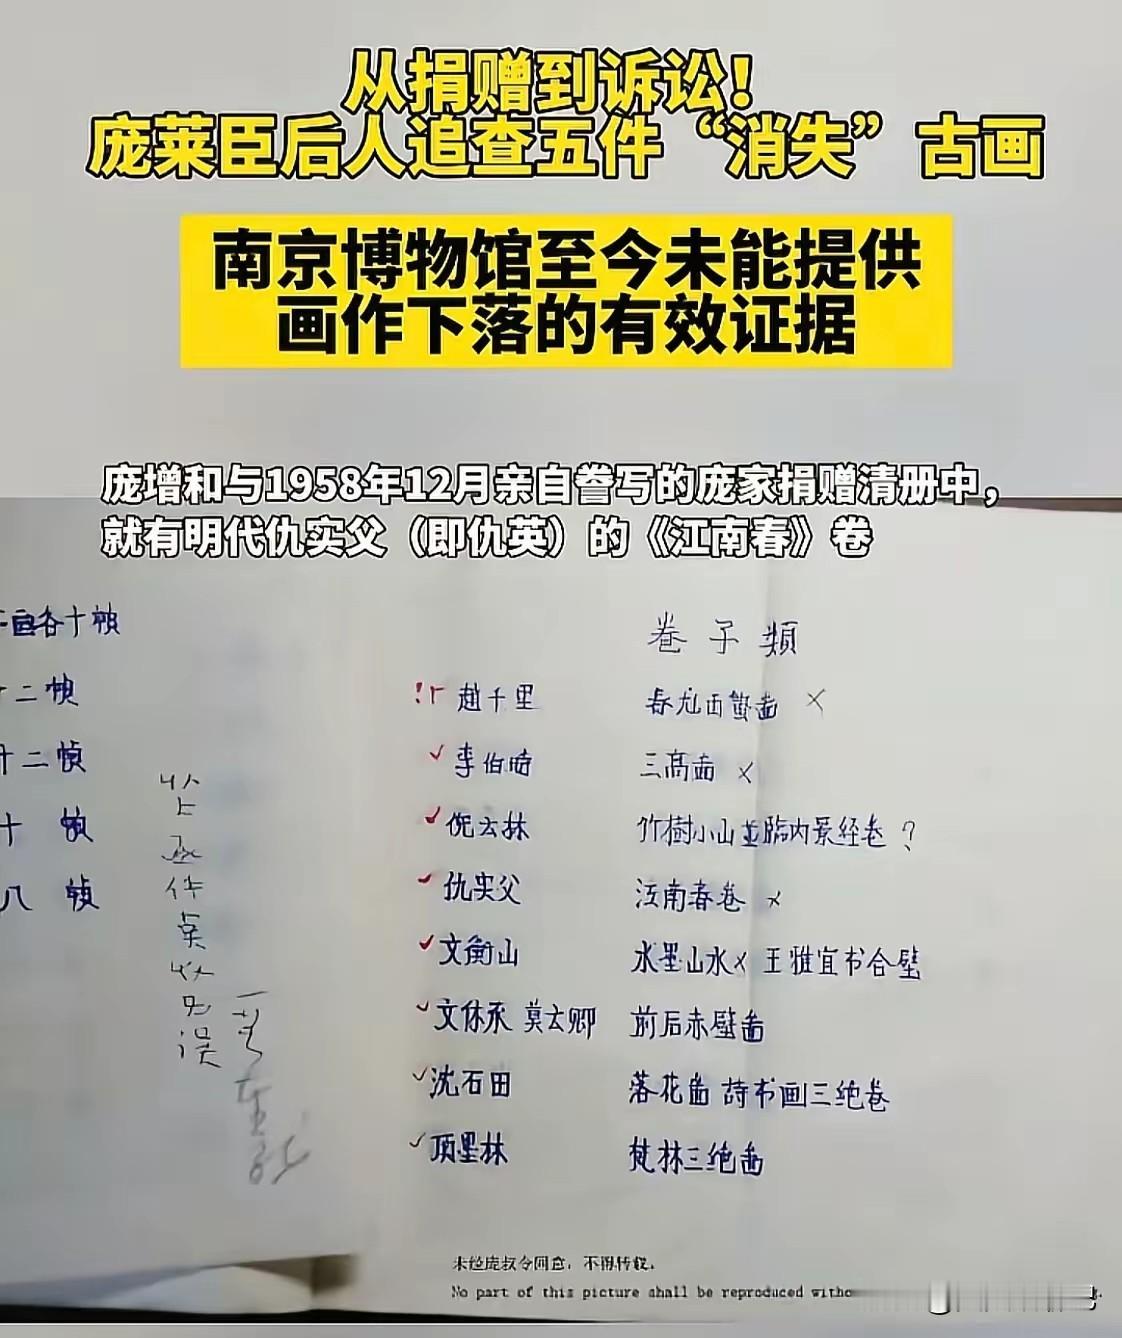 从捐赠到诉讼!
庞莱臣后人追查五件“消失”古画
南京博物馆至今未能提供
画作下落的有效证据
庞增和与1958年12月亲自誊写的庞家捐赠清册中，
就有明代仇实父（即仇英）的《江南春》卷
各十帧
十二帧
廿二帧
十 帧
八 帧
卷子類
趙千里
李伯時 三高啚 x
倪云林 竹樹小山並臨内景经卷 ?
仇实父 江南春卷 x
文衡山 水墨山水x 王雅宜书合壁
文休承 莫云卿 前后赤壁啚
沈石田 落花啚 詩书画三绝卷
项墨林 梵林三绝啚
未经庞叔令同意，不得转载。
No part of this picture shall be reproduced